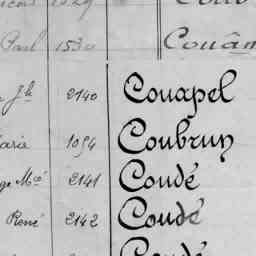 Paul 1530 Couâm
Jh 2140 Couapel
arie 1094 Coubrun
ge Mcé 2141 Coudé
René 2142 Coudé
Coudé